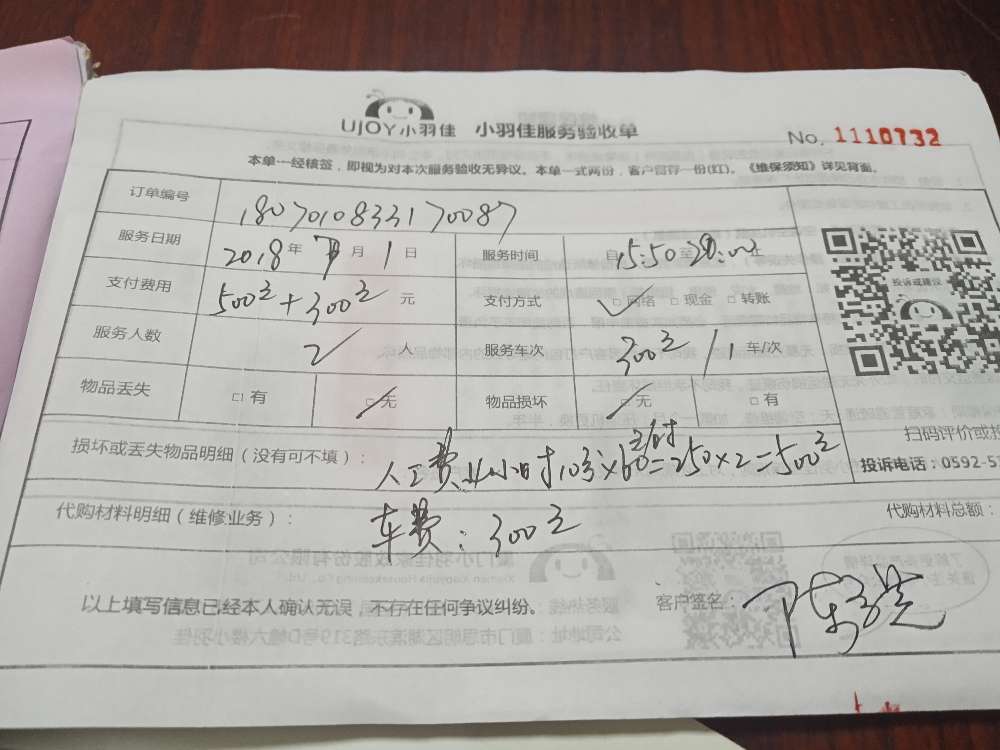 UJOY小羽佳 小羽佳服务验收单
No. 1110732
本单一经核签，即视为对本次服务验收无异议。本单一式两份，客户留存一份(红)。《维保须知》详见背面。
订单编号 180701083317 0087
服务日期 2018年 7月 1日 服务时间 自15:50至20:00止
支付费用 500元+300元 元 支付方式 □网络 □现金 □转账
服务人数 2 人 服务车次 300元/1 车/次
物品丢失 □有 □无 物品损坏 □无 □有
投诉或建议
扫码评价或投
损坏或丢失物品明细（没有可不填）： 人工费 4小时10分×60元/时=250×2=500元
投诉电话：0592-5
代购材料明细（维修业务）： 车费：300元
代购材料总额：
以上填写信息已经本人确认无误，不存在任何争议纠纷。 客户签名：